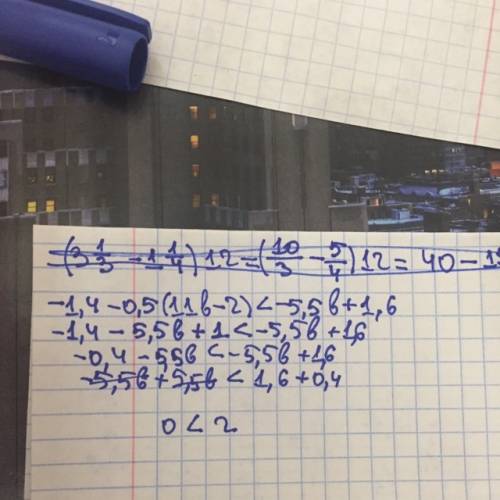 (3 1/3 - 1 1/4) 12 = (10/3 - 5/4) 12 = 40 - 1
-1,4 - 0,5(11в-2) < -5,5в + 1,6
-1,4 - 5,5в + 1 < -5,5в + 1,6
-0,4 - 5,5в < -5,5в + 1,6
-5,5в + 5,5в < 1,6 + 0,4
0 < 2